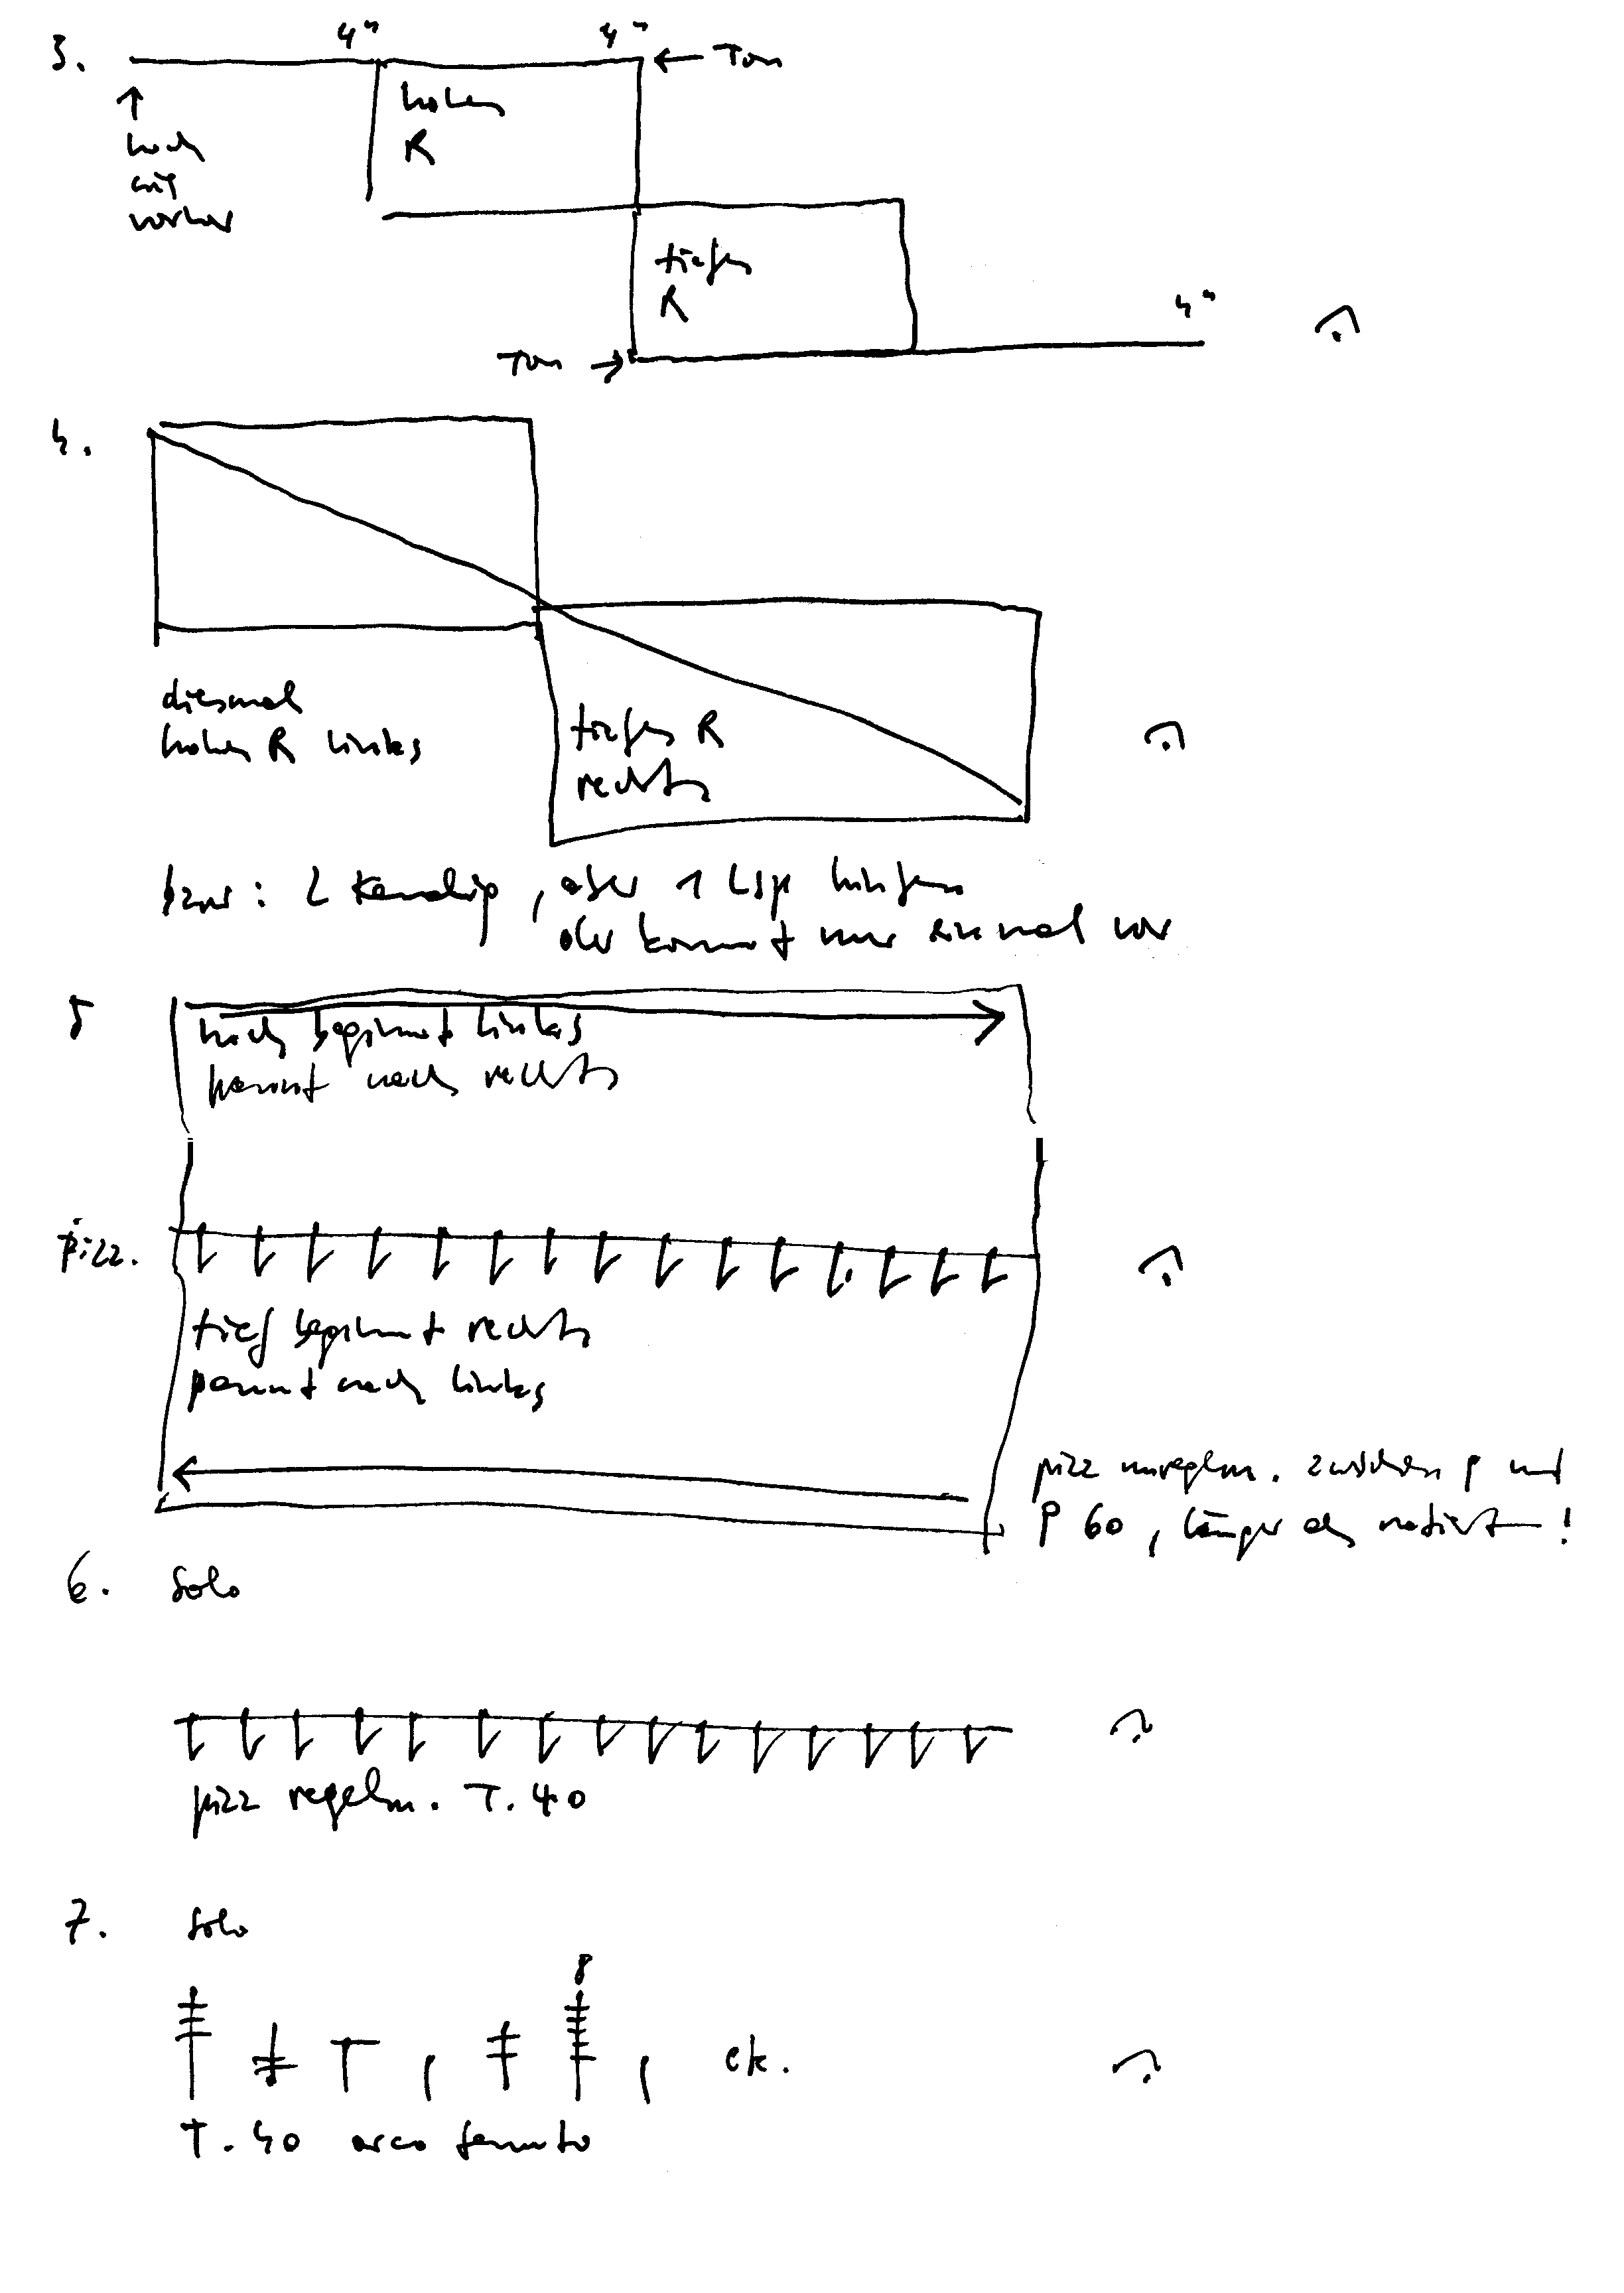 3. 4" 4" ← Ton
↑
hoch
wie
vorher
hohes
R
tiefes
R
4"
Ton →
4.
diesmal
hohes R links
tiefes R
rechts
bzw: 2 Kanalig, aber 1 Lsp hinten
der kommt nur einmal vor
5
hoch beginnt links
pannt nach rechts
pizz.
tief beginnt rechts
pannt nach links
pizz unregelm. zwischen p und
P 60, länger als notiert!
6. Solo
pizz regelm. T. 40
7. Solo
8
etc.
T. 40 arco tenuto